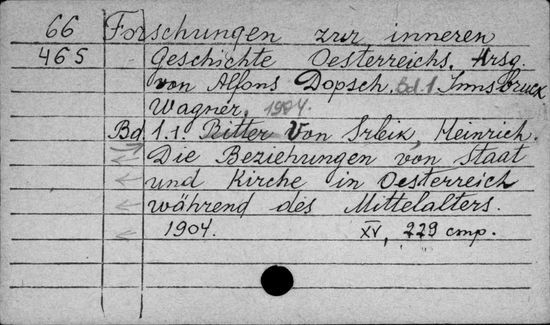 66 Forschungen zur inneren
465 Geschichte Oesterreichs. Hrsg.
von Alfons Dopsch. Bd. 1 Innsbruck
Wagner, 1904.
Bd. 1.1. Ritter Von Srbik, Heinrich.
Die Beziehungen von Staat
und Kirche in Oesterreich
während des Mittelalters.
1904. XV, 229 cmp.